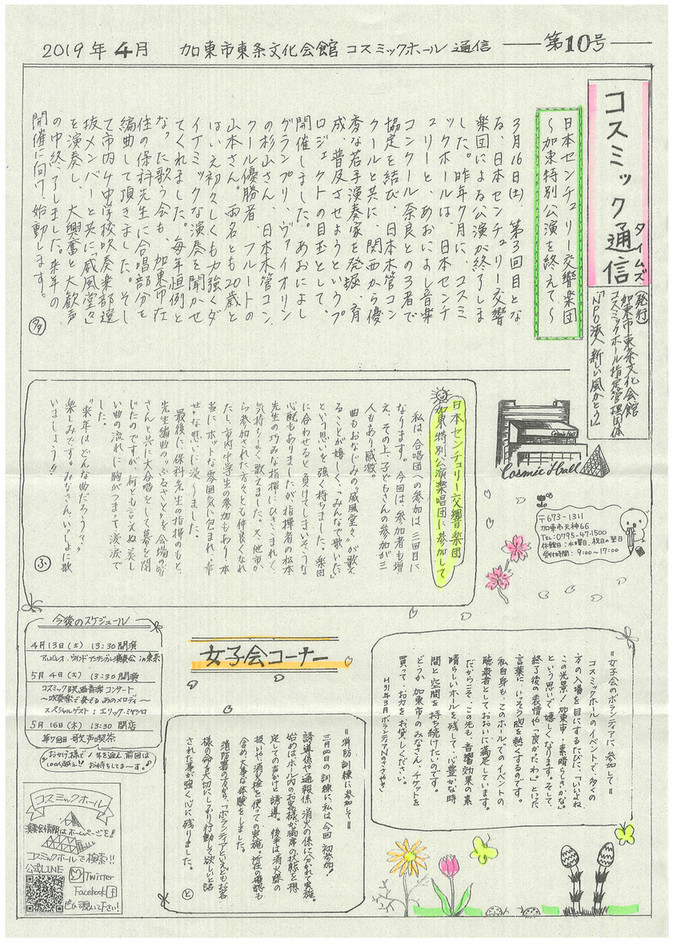 2019年4月 加東市東条文化会館 コスミックホール 通信 ― 第10号 ―
コスミック通信
タイムズ
発行
加東市東条文化会館
コスミックホール指定管理団体
「NPO法人 新しい風かとう」
日本センチュリー交響楽団
～加東特別公演を終えて～
3月16日(土)、第3回目とな
る、日本センチュリー交響
楽団による公演が終了しま
した。昨年7月に、コスミ
ックホールは、日本センチ
ュリーと、あおによし音楽
コンクール奈良との3者で
協定を結び、日本木管コン
クールと共に、関西から優
秀な若手演奏家を発掘、育
成、普及させようというプ
ロジェクトの目玉として、
開催しました。あおによし
グランプリ、ヴァイオリン
の杉山さん、日本木管コン
クール優勝者、フルートの
山本さん。両名とも20歳と
はいえ初々しくも力強くダ
イナミックな演奏を聞かせ
てくれました。毎年恒例と
なった歌う会も、加東市在
住の保科先生に合唱部分を
編曲して頂きました。そし
て市内中学校吹奏楽部選
抜メンバーと共に「威風堂々」
を演奏し、大興奮と大歓声
の中終了しました。来年の
開催に向け、始動します。
日本センチュリー交響楽団
加東特別公演合唱団に参加して
私は、合唱団への参加は三回目に
なります。今回は参加者も増
え、その上、子どもさんの参加が三
人もあり感激。
曲もおなじみの「威風堂々」が歌え
ることが嬉しく、「みんなで歌いたい」
という思いを強く持ちました。楽団
に合わせると負けてしまいそうな
心配もありましたが指揮者の松本
先生の巧みな指揮にひきこまれて、
気持ちよく歌えました。又、他市か
ら参加された方々とも仲良くなれ
たし、市内中学生の参加もあり、本
当にホットな雰囲気に包まれ、幸
せな思いに浸りました。
最後に、保科先生の指揮のもと、
先生編曲の「ふるさと」を会場の皆
さんと共に大合唱をして幕を閉
じたのですが、何とも言えぬ美し
い曲の流れに胸がつまって涙涙で
した。
"来年はどんな歌だろう?"
楽しみです。みなさん、いっしょに歌
いましょう!!
Cosmic Hall
〒673-1311
加東市天神66
TEL:0795-47-1500
休館日:水曜日、祝日の翌日
受付時間:9:00~17:00
今後のスケジュール
4月13日(土) 13:30開演
アルバレオ ウインドアンサンブル演奏会 in東条
5月4日(土) 13:30開演
コスミック映画音楽コンサート
～吹奏楽で奏でる あのメロディ～
スペシャルゲスト:エリック・ミヤシロ
5月16日(木) 13:30開店
第7回目歌声喫茶
お待ちしてまーす。
女子会コーナー
=女子会のボランティアに参加して=
コスミックホールのイベントで多くの
方の入場を目にするたびに、「いいよね
この光景!加東市!素晴らしきかな。
という思いで嬉しくなります。そして、
終了後の表情や「良かったわ」といった
言葉に、いっそう胸を熱くするのです。
私自身も、このホールでのイベントの
聴衆者としておおいに満足しています。
だからこそ、この先も、音響効果の素
晴らしいホールを残して、心豊かな時
間と空間を持ち続けたいのです。
どうか、加東市のみなさん、チケットを
買って、お力をお貸しください。
H31年3月 ボランティアNのつぶやき
=消防訓練に参加して=
三月四日の訓練に私は今回初参加!
誘導係や通報係、消火の係に分かれて実施。
始めはホール内のお客様が満席の状態を想
定しての声かけと誘導。後半は消火栓の
扱いや消火器を使っての実施。所在の確認も
含め大事な体験をしました。
消防署の方から「ボランティアといえどもお客
様の命を大切にしっかり行動して欲しい」と話
された事が強く心に残りました。
コスミックホール
演奏会情報はホームページを!!
コスミックホールで検索!!
公式LINE
Twitter
Facebook
ぜひ覗いて下さい!